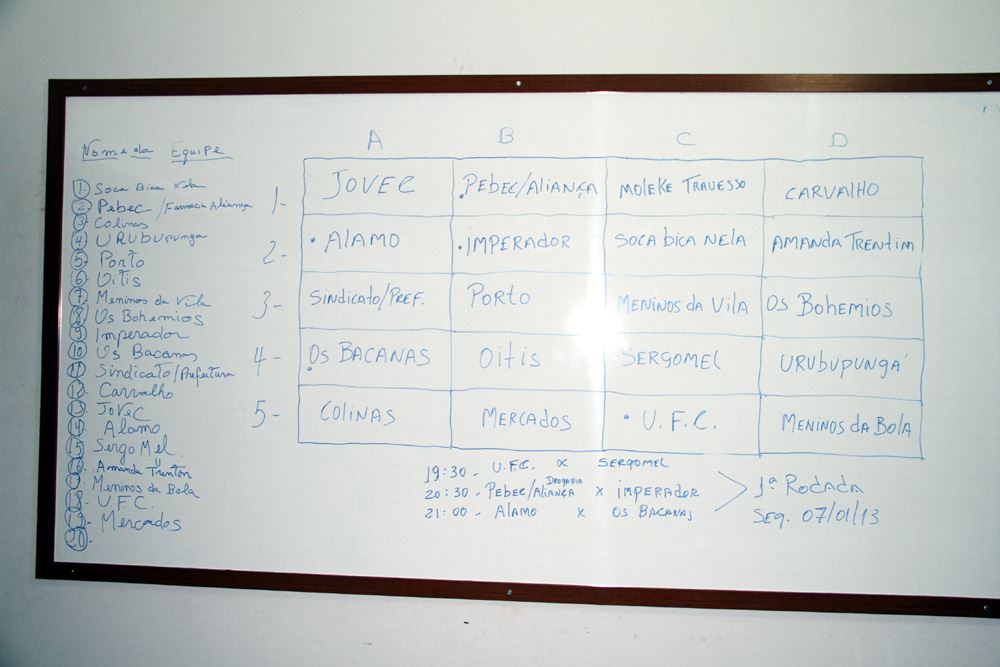 Nome da Equipe
1. Soca Bica Nela
2. Pebec / Farmacia Aliança
3. Colinas
4. URUbupunga
5. Porto
6. Oitis
7. Meninos da Vila
8. Os Bohemios
9. Imperador
10. Os Bacanas
11. Sindicato/Prefeitura
12. Carvalho
13. Jovec
14. Alamo
15. SergoMel.
16. Amanda Trenton
17. Meninos da Bola
18. U.F.C.
19. Mercados
20.
A B C D
1- JOVEC .PEBEC/ALIANÇA MOLEKE TRAVESSO CARVALHO
2- . ALAMO . IMPERADOR SOCA BICA NELA AMANDA TRENTIM
3- SINDICATO/PREF. PORTO MENINOS da VILA OS BOHEMIOS
4- OS BACANAS OITIS SERGOMEL URUBUPUNGÁ
5- COLINAS MERCADOS . U.F.C. MENINOS da BOLA
19:30 - U.F.C. x SERGOMEL
DROGARIA
20:30 - PEBEC/ALIANÇA x IMPERADOR
21:00 - ALAMO x OS BACANAS
1ª RODADA
SEG. 07/01/13